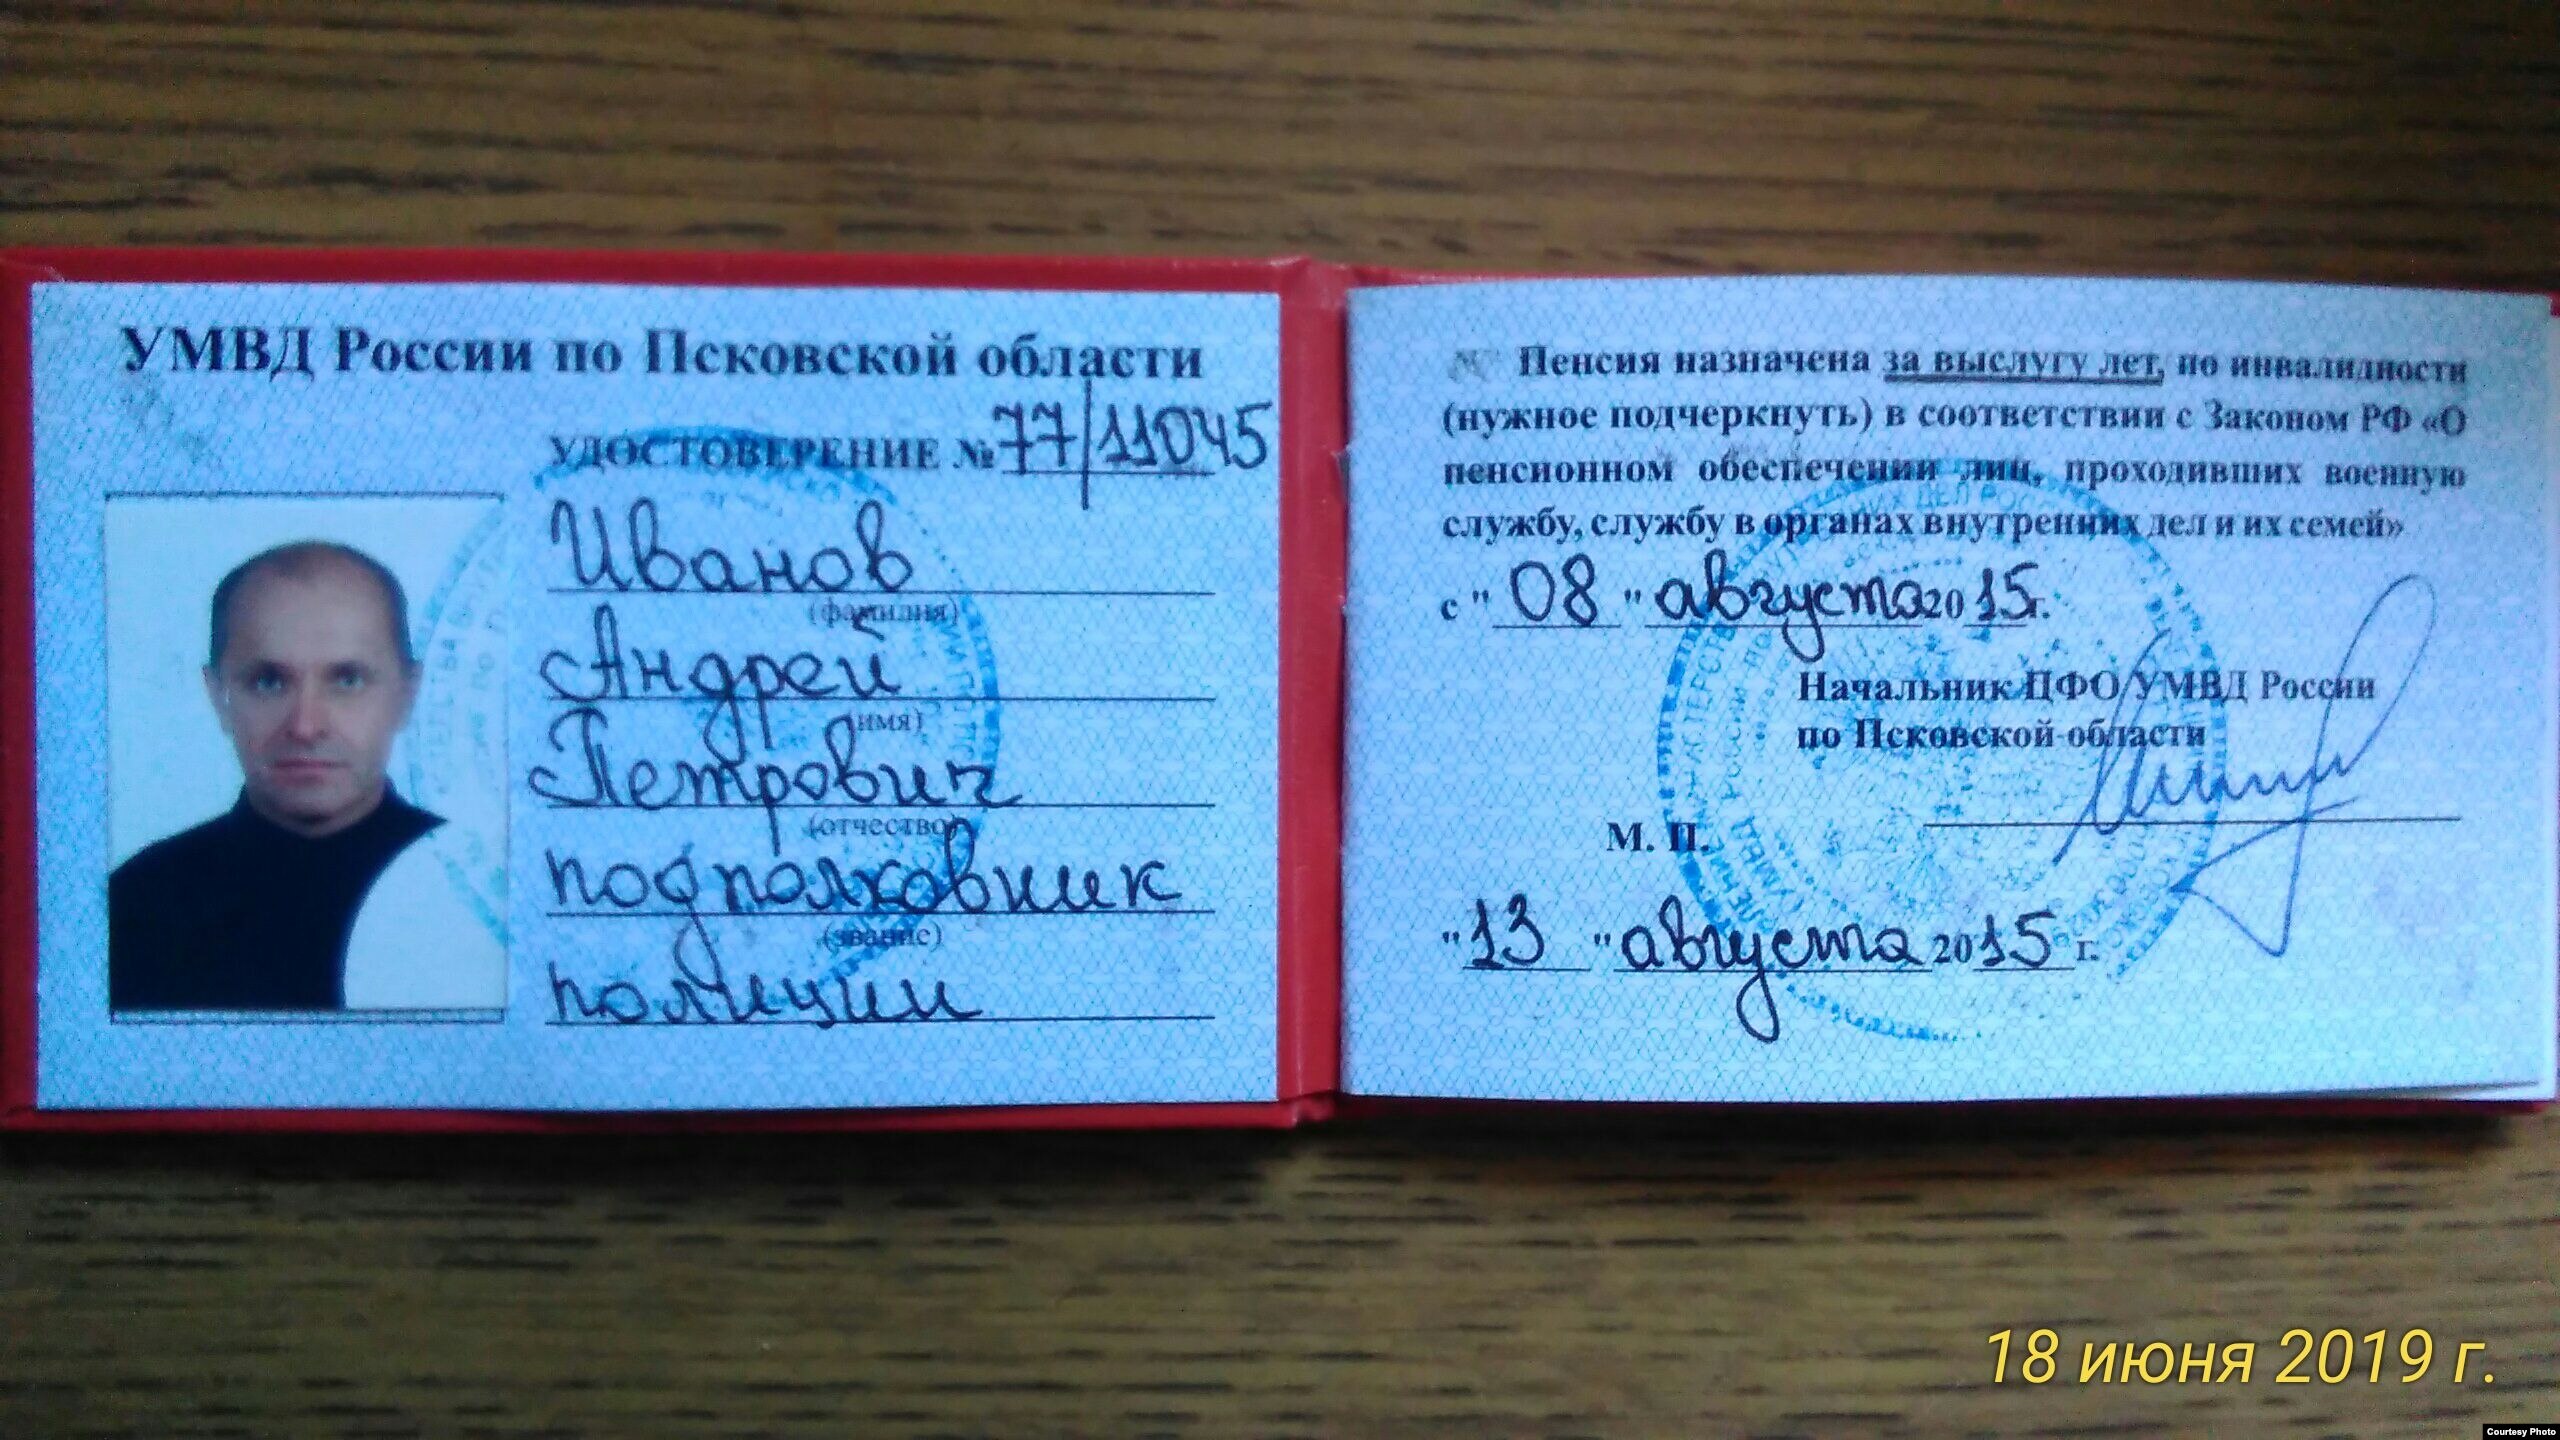 УМВД России по Псковской области
УДОСТОВЕРЕНИЕ № 77/11045
Иванов
(фамилия)
Андрей
(имя)
Петрович
(отчество)
подполковник
(звание)
полиции
Пенсия назначена за выслугу лет, по инвалидности
(нужное подчеркнуть) в соответствии с Законом РФ «О
пенсионном обеспечении лиц, проходивших военную
службу, службу в органах внутренних дел и их семей»
с "08" августа 2015г.
Начальник ЦФО УМВД России
по Псковской области
М. П.
"13" августа 2015 г.
18 июня 2019 г.
Courtesy Photo